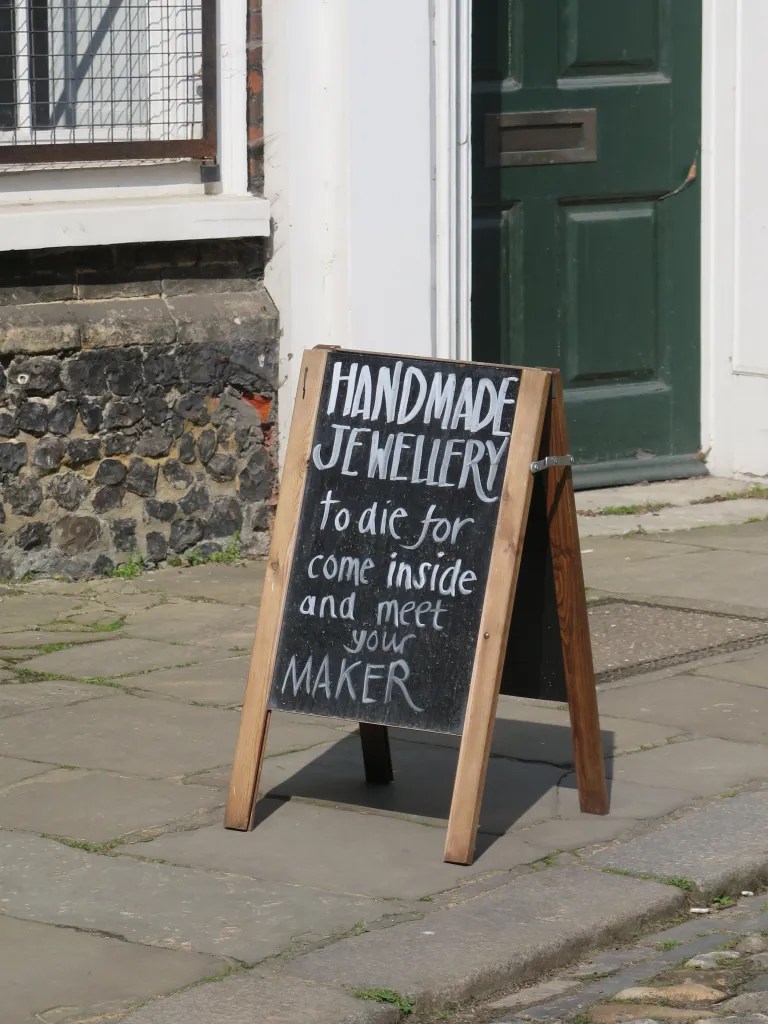 HANDMADE
JEWELLERY
to die for
come inside
and meet
your
MAKER